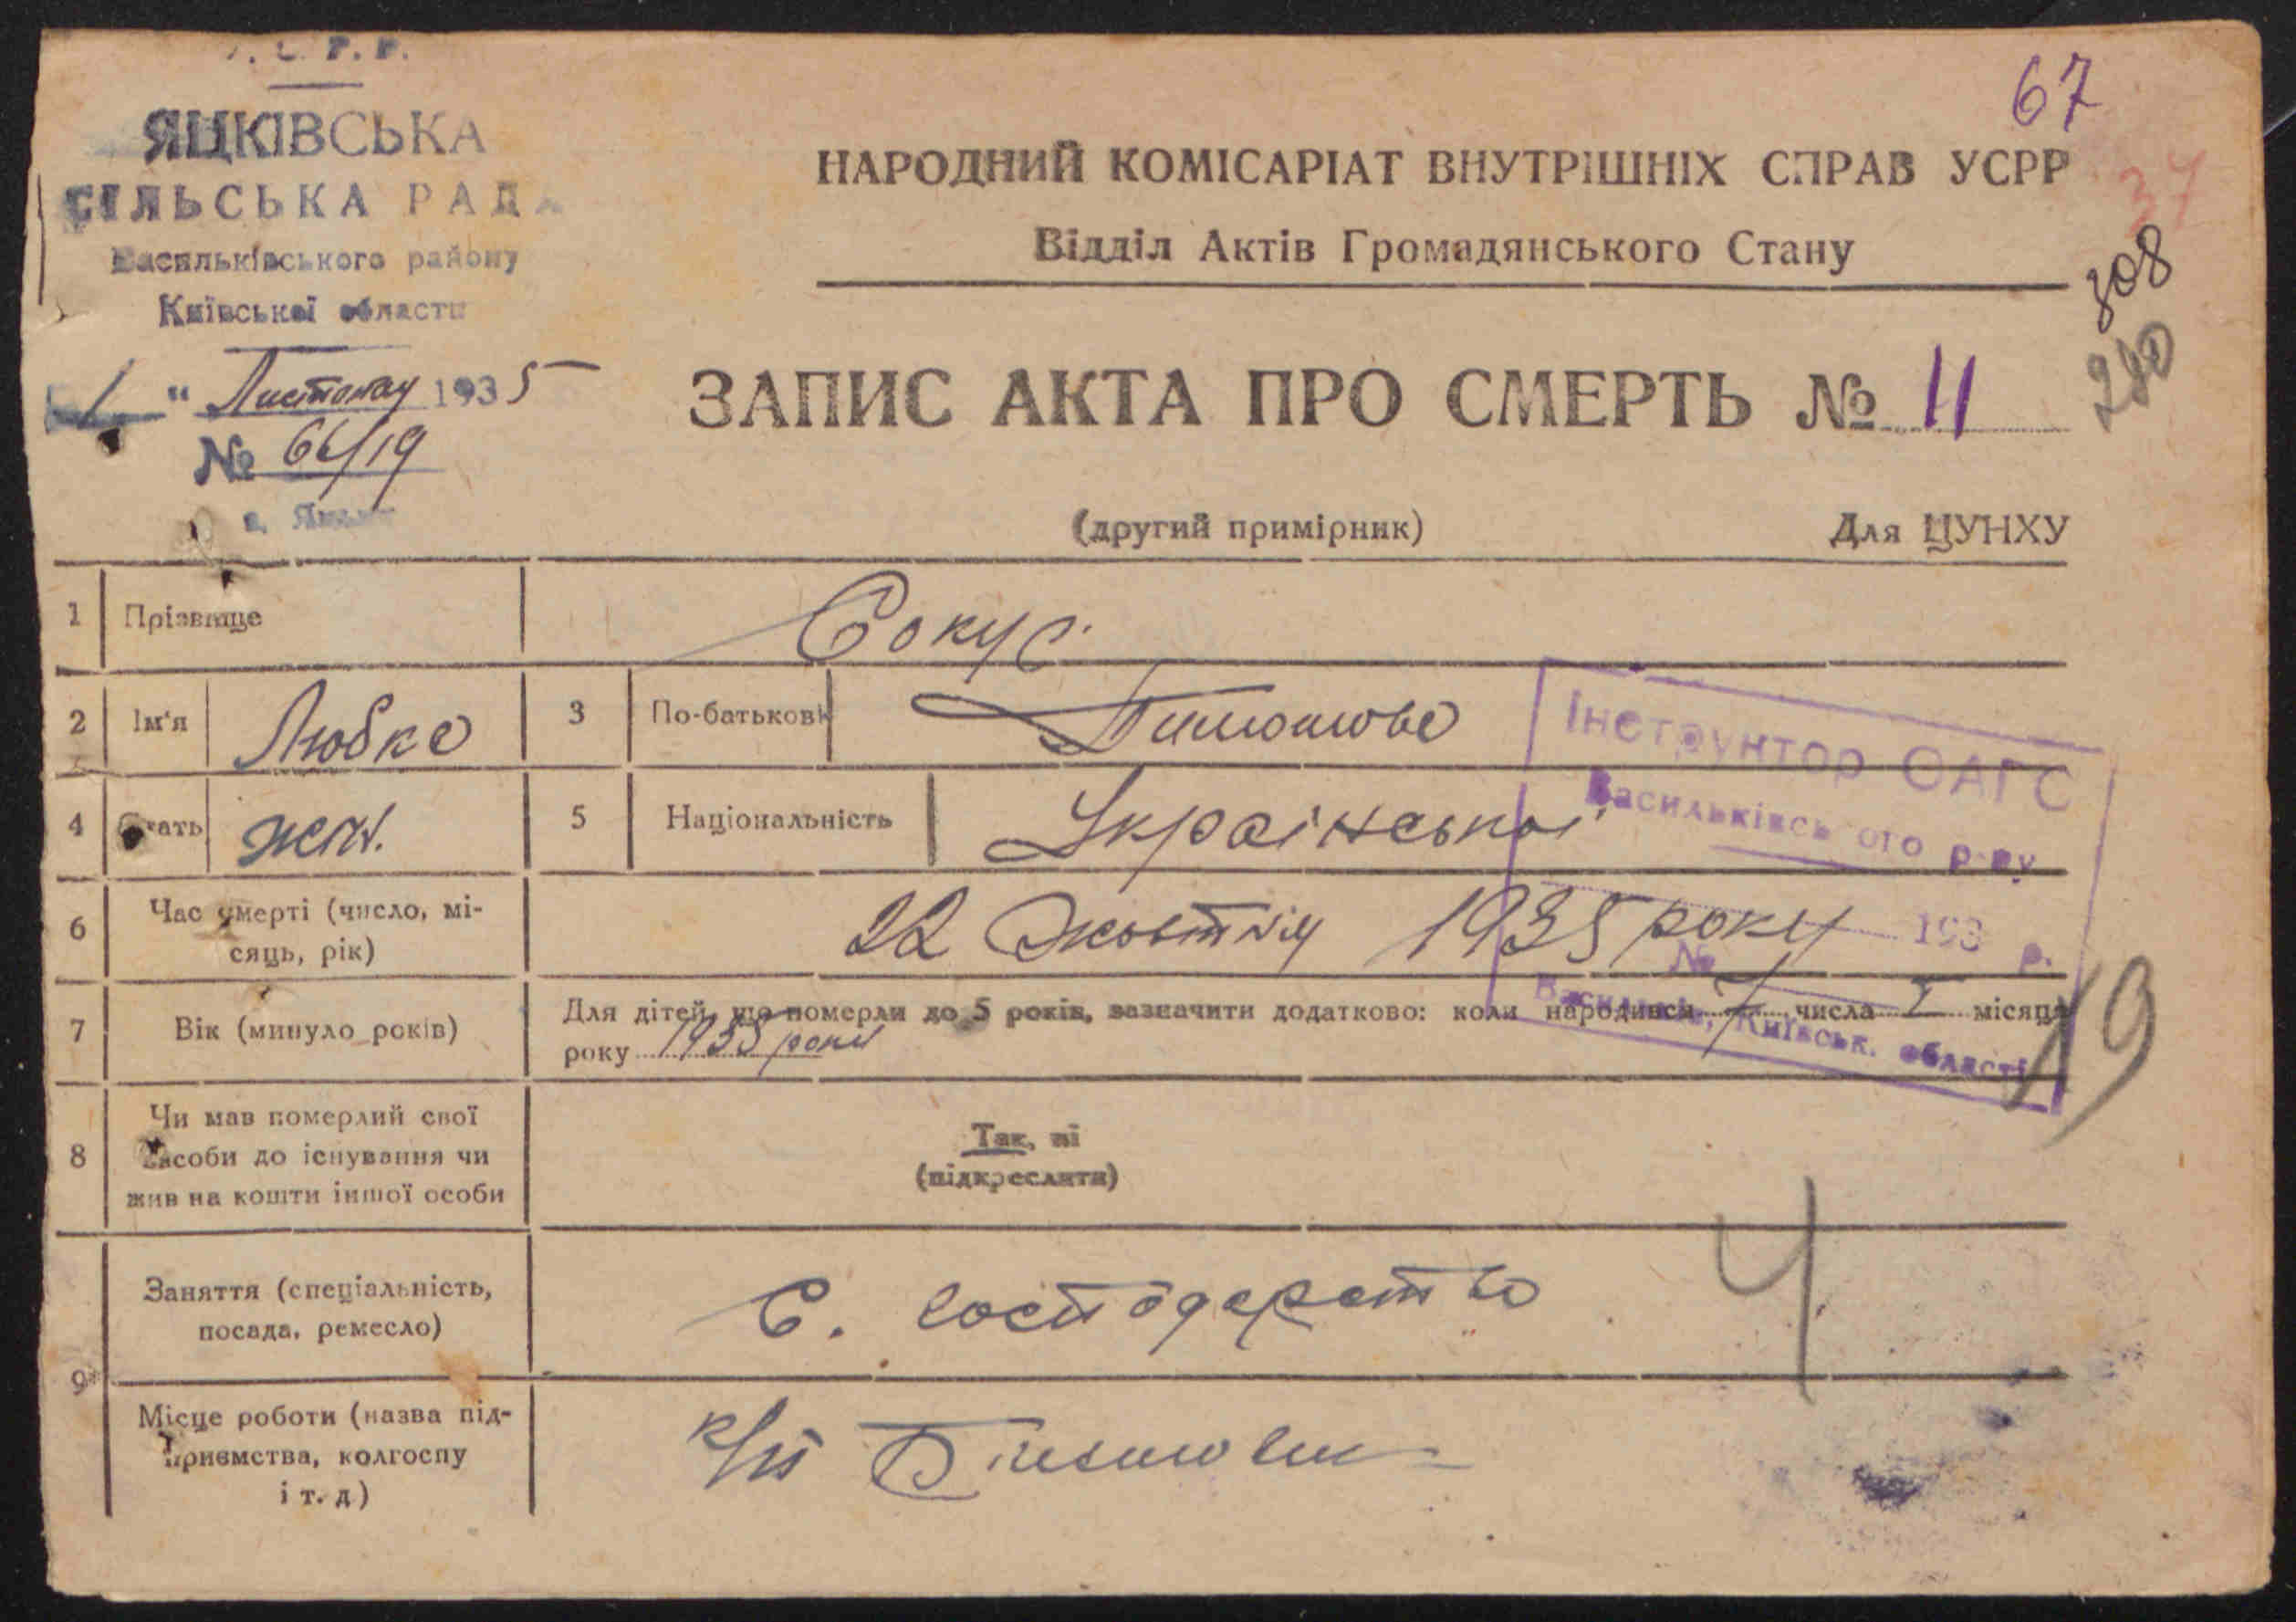 У. С. Р. Р.
ЯЦКІВСЬКА
СІЛЬСЬКА РАДА
Васильківського району
Київської области
1 " Листопаду 1935
№ 66/19
с. Яцьки
67
37
308
280
НАРОДНИЙ КОМІСАРІАТ ВНУТРІШНІХ СПРАВ УСРР
Відділ Актів Громадянського Стану
ЗАПИС АКТА ПРО СМЕРТЬ № 11
(другий примірник) Для ЦУНХУ
1 Прізвище Сокус
2 Ім'я Любка 3 По-батькові Тимошова
4 Стать жін. 5 Національність Українська
Інструктор ОАГС
Васильківського р-ну
193 р.
№
Васильків, Київськ. області
6 Час смерті (число, мі-
сяць, рік) 22 жовтня 1935 року
7 Вік (минуло років) Для дітей, що померли до 5 років, зазначити додатково: коли народився 7 числа I місяця
року 1935 року
19
8 Чи мав померлий свої
засоби до існування чи
жив на кошти іншої особи
Так, ні
(підкреслити)
9* Заняття (спеціальність,
посада, ремесло) С. господарство
4
Місце роботи (назва під-
приємства, колгоспу
і т. д)